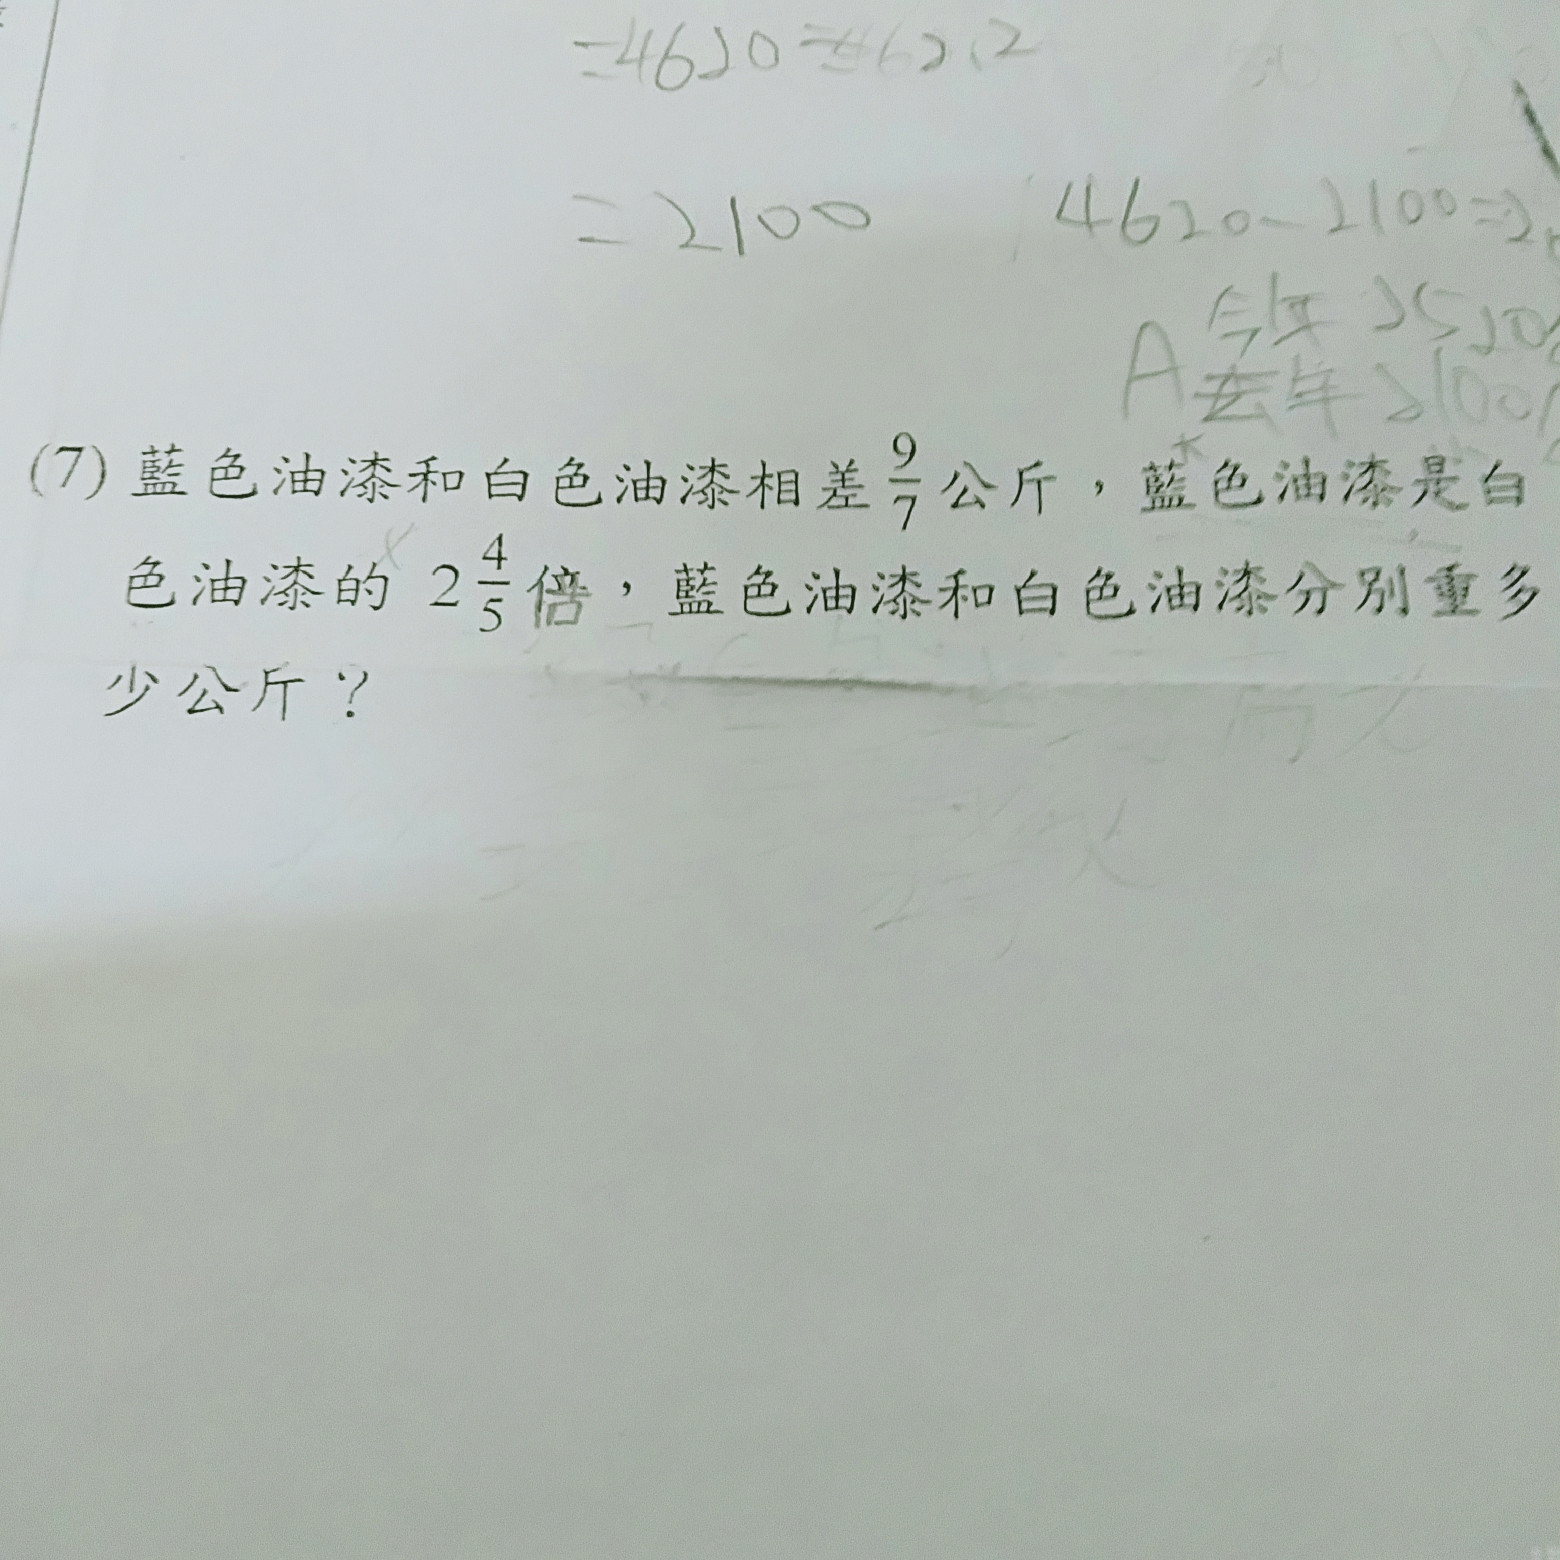 =4620÷
=2100 4620-2100=2
今年 2520
A去年2100
(7) 藍色油漆和白色油漆相差 9/7 公斤，藍色油漆是白
色油漆的 2 4/5 倍，藍色油漆和白色油漆分別重多
少公斤？